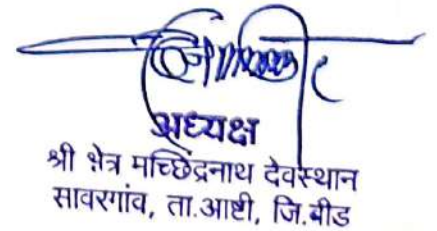 अध्यक्ष
श्री क्षेत्र मच्छिंद्रनाथ देवस्थान
सावरगांव, ता.आष्टी, जि.बीड